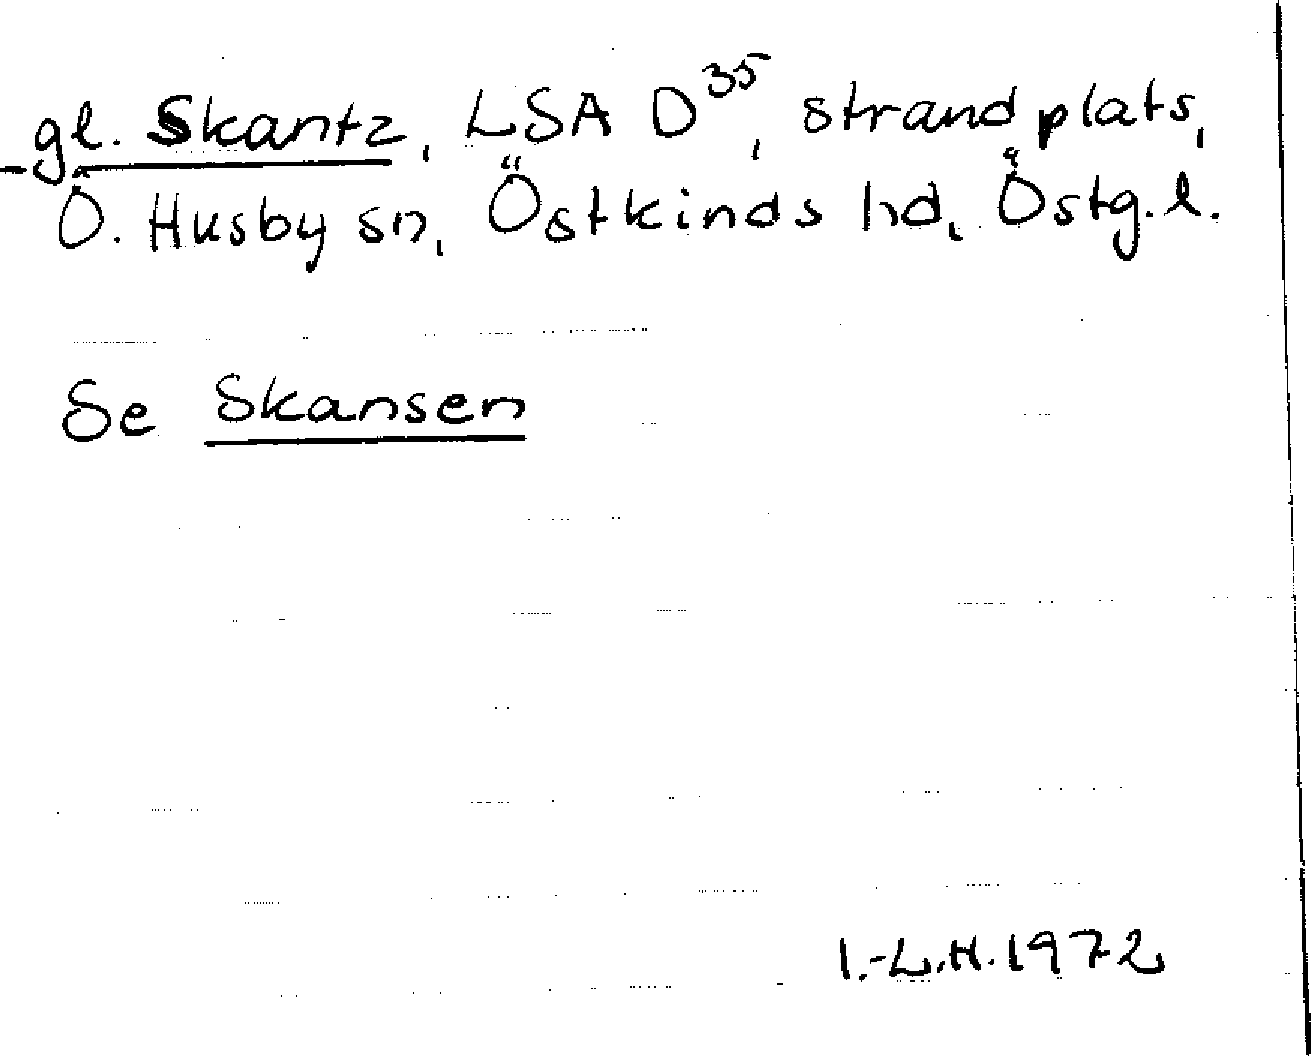 gl. Skantz, LSA D³⁵, strandplats,
Ö. Husby sn, Östkinds hd, Östg.l.
Se Skansen
I.-L.H. 1972